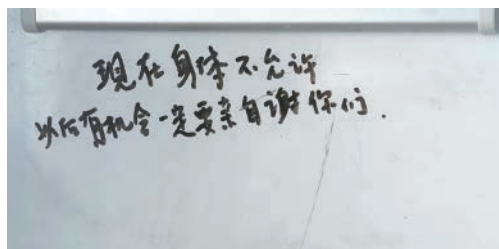 现在身体不允许
以后有机会一定要亲自谢你们.